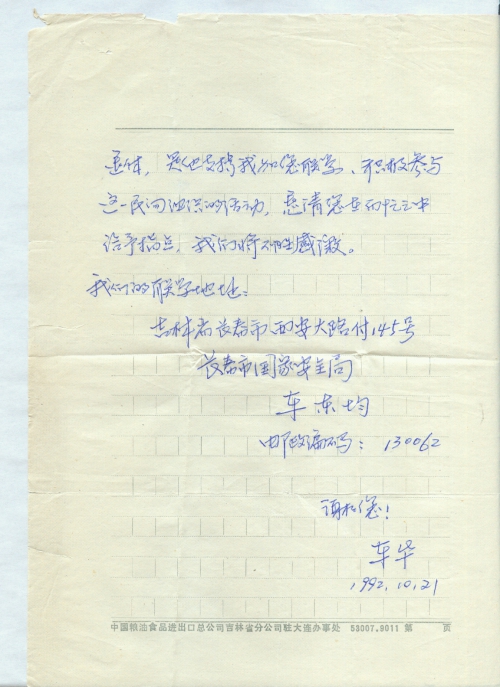 重体，是他支持我和您联系、积极参与
这一民间组织的活动，恳请您在百忙之中
给予指点，我们将不胜感激。
我们的联系地址：
吉林省长春市西安大路付145号
长春市国家安全局
车东均
邮政编码：130062
谢谢您！
车华
1992.10.21
中国粮油食品进出口总公司吉林省分公司驻大连办事处 S3007.9011 第 页